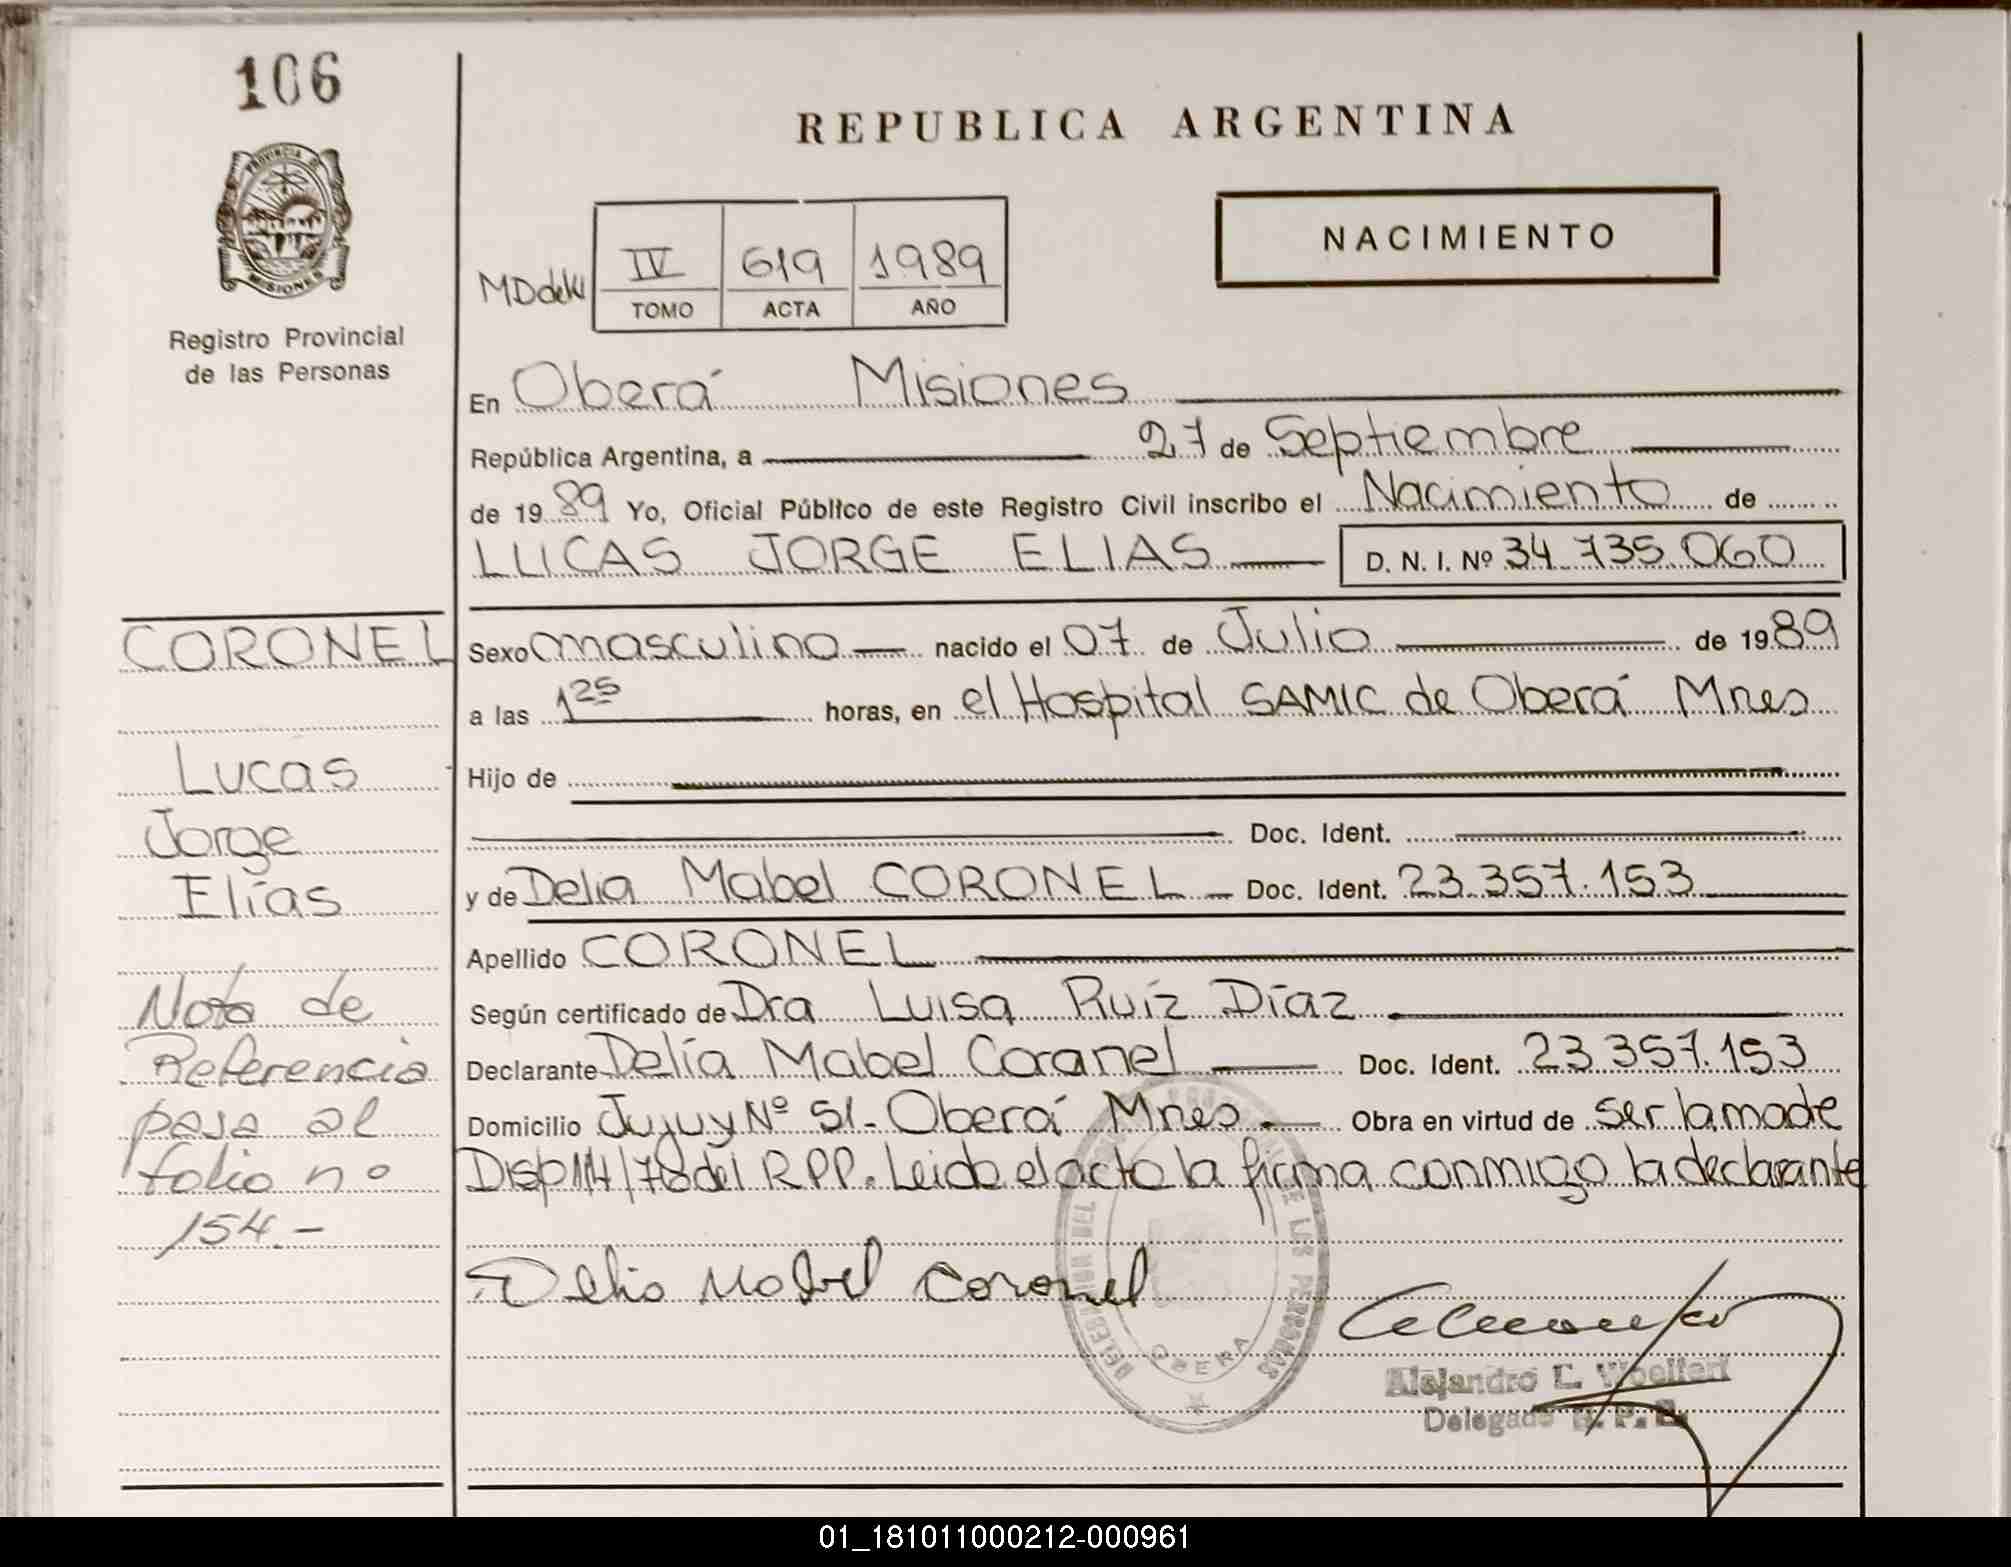 106
REPUBLICA ARGENTINA
PROVINCIA D
MISIONES
Registro Provincial
de las Personas
NACIMIENTO
IV 619 1989
TOMO ACTA AÑO
En Oberá Misiones
República Argentina, a 27 de Septiembre
de 1989 Yo, Oficial Público de este Registro Civil inscribo el Nacimiento de
LUCAS JORGE ELIAS D. N. I. Nº 34.735.060
CORONEL
Lucas
Jorge
Elías
Nota de
Referencia
pasa al
folio nº
154.-
Sexo masculino nacido el 07 de Julio de 1989
a las 1 25 horas, en el Hospital SAMIC de Oberá Mnes
Hijo de
Doc. Ident.
y de Delia Mabel CORONEL Doc. Ident. 23.357.153
Apellido CORONEL
Según certificado de Dra Luisa Ruíz Díaz
Declarante Delía Mabel Coronel Doc. Ident. 23.357.153
Domicilio Jujuy Nº 51.- Oberá Mnes Obra en virtud de ser la madre
Disp 114/78 del R.P.P. Leida el acta la firma conmigo la declarante
Delia Mabel Coronel
DELEGACION DEL REGISTRO PROVINCIAL DE LAS PERSONAS
OBERA
Alejandro E. Woelfert
Delegado R. P. P.
01_181011000212-000961